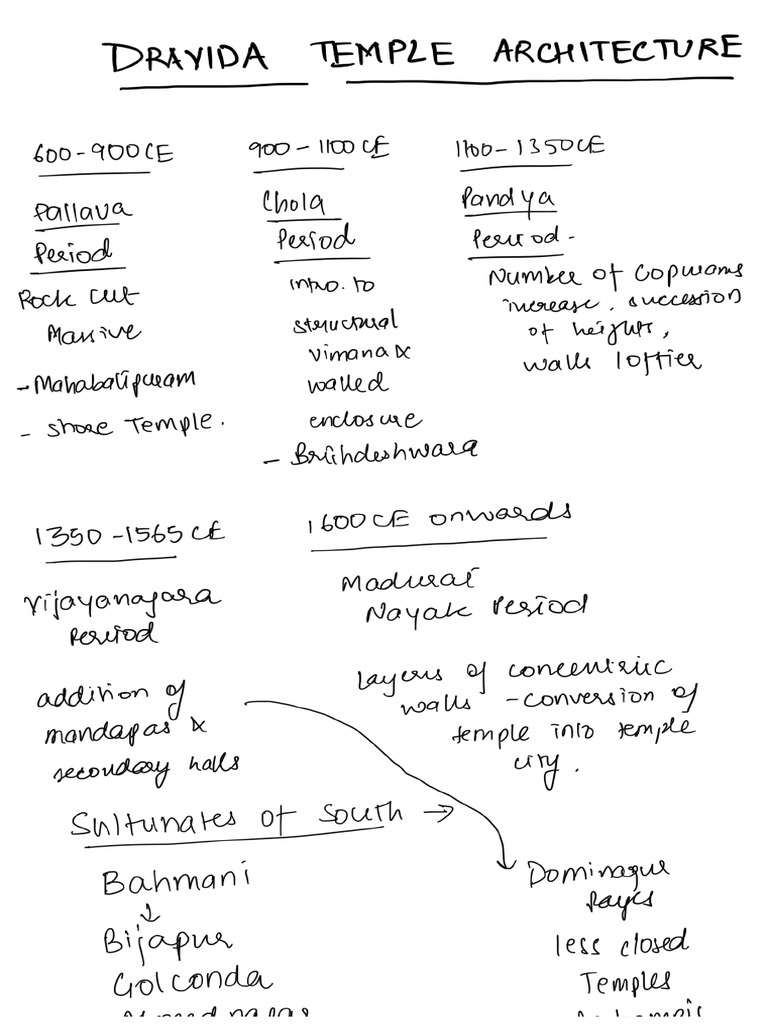 DRAVIDA TEMPLE ARCHITECTURE
600-900 CE
Pallava
Period
Rock cut
Massive
- Mahabalipuram
- Shore Temple.
900-1100 CE
Chola
Period
intro. to
structural
vimana &
walled
enclosure
- Brihdeshwara
1100-1350CE
Pandya
Period -
Number of Gopurams
increase, succession
of heights,
walls loftier
1350-1565 CE
Vijayanagara
Period
addition of
mandapas &
secondary halls
1600 CE onwards
Madurai
Nayak Period
Layers of concentric
walls - conversion of
temple into temple
city.
Sultunates of South →
Bahmani
↓
Bijapur
Golconda
less closed
Temples